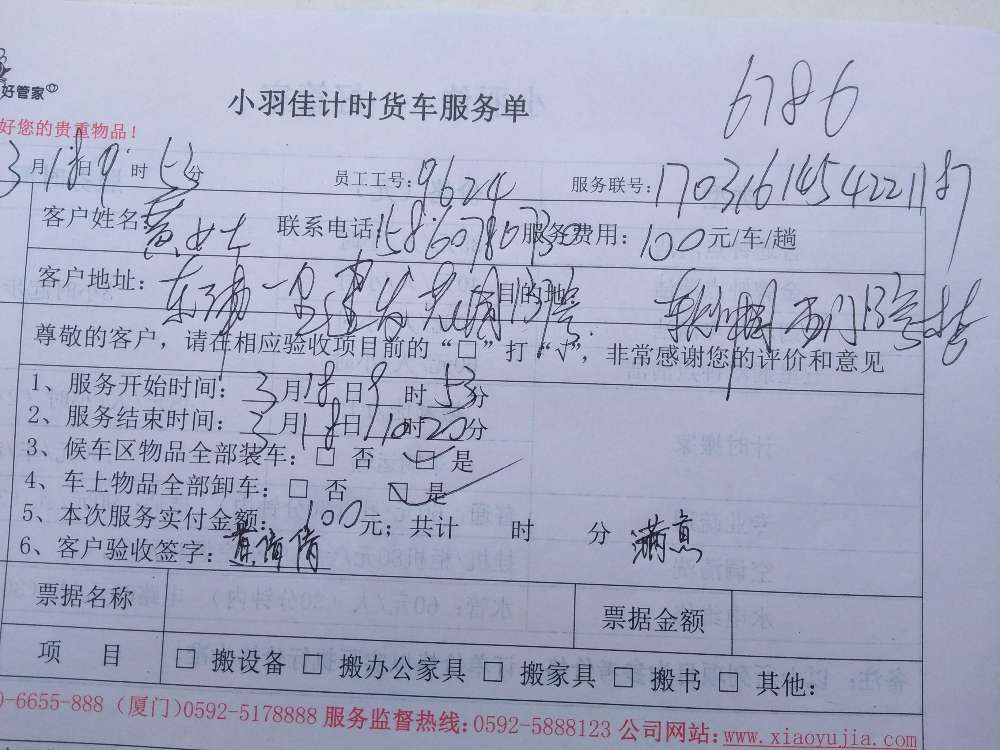 好管家
小羽佳计时货车服务单
6786
好您的贵重物品!
3月18日9时53分 员工工号:9624 服务联号:170316145422118
客户姓名:黄女士 联系电话: 服务费用:100元/车/趟
客户地址: 目的地:
尊敬的客户,请在相应验收项目前的“□”打“√”,非常感谢您的评价和意见
1、服务开始时间:3月18日9时53分
2、服务结束时间:3月18日10时20分
3、候车区物品全部装车:□ 否 □ 是
4、车上物品全部卸车:□ 否 □ 是
5、本次服务实付金额:100元;共计 时 分 满意
6、客户验收签字:
票据名称 票据金额
项 目 □ 搬设备 □ 搬办公家具 □ 搬家具 □ 搬书 □ 其他:
0-6655-888 (厦门)0592-5178888 服务监督热线:0592-5888123 公司网站:www.xiaoyujia.com